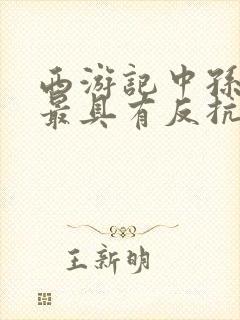 西游記中孫
最具有反抗
王新明